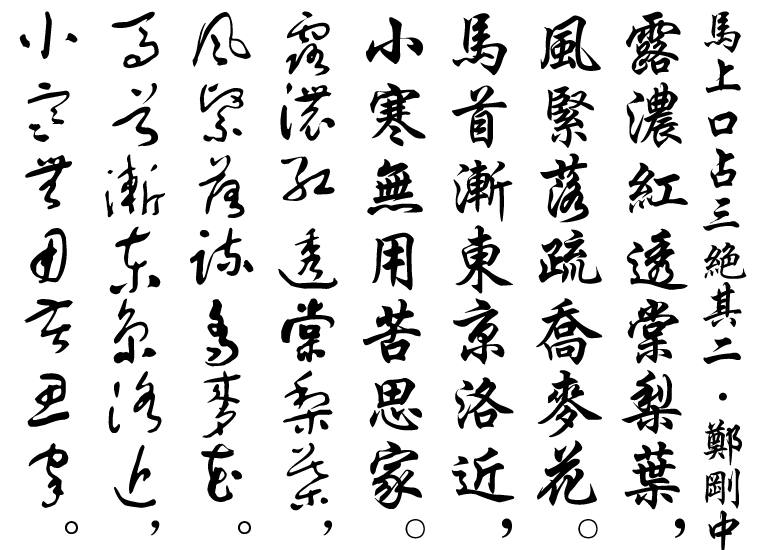 馬上口占三絕其二・鄭剛中
露濃紅透棠梨葉，
風緊落疏喬麥花。
馬首漸東京洛近，
小寒無用苦思家。
露濃紅透棠梨葉，
風緊落疏喬麥花。
馬首漸東京洛近，
小寒無用苦思家。